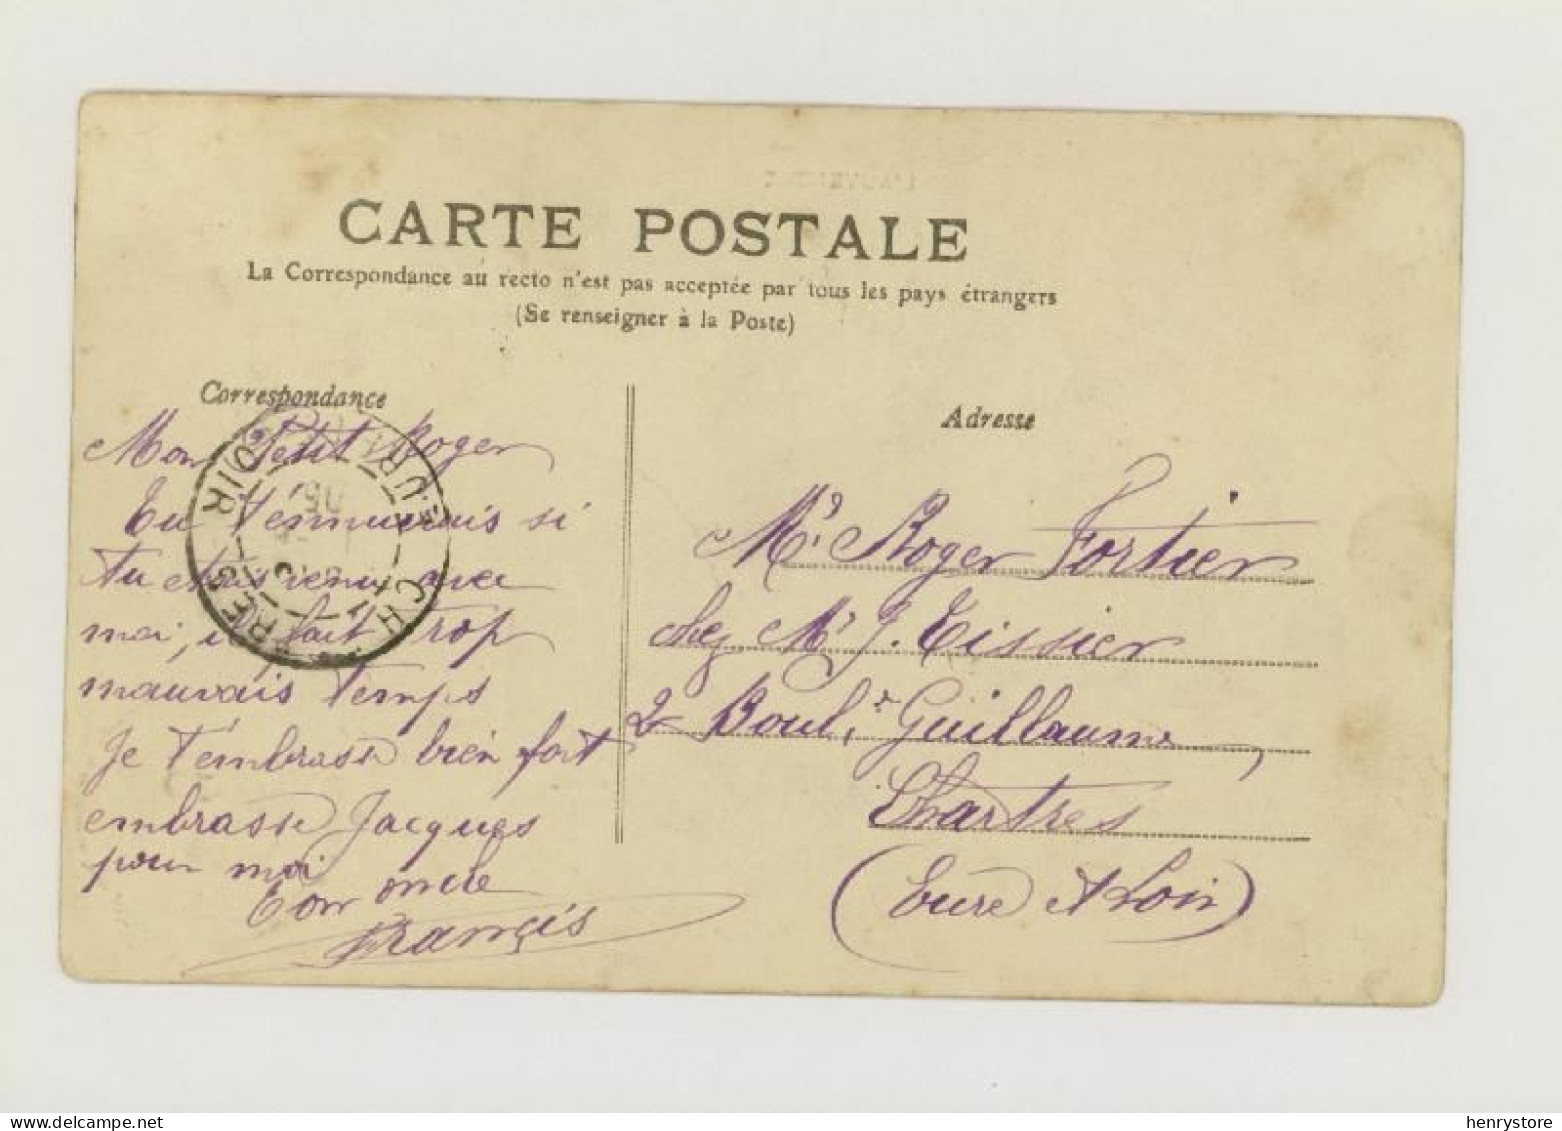 CARTE POSTALE
La Correspondance au recto n'est pas acceptée par tous les pays étrangers
(Se renseigner à la Poste)
Correspondance
Mon Petit Roger
Tu t'ennuierais si
tu étais venu avec
moi, il fait Trop
mauvais Temps
Je t'embrasse bien fort
embrasse Jacques
pour moi
Ton oncle
Français
CHARTRES
EURE-ET-LOIR
Adresse
Mr. Roger Fortier
chez Mr J. Tissier
2 Boul. Guillaume,
Chartres
(Eure et Loir)
henrystore